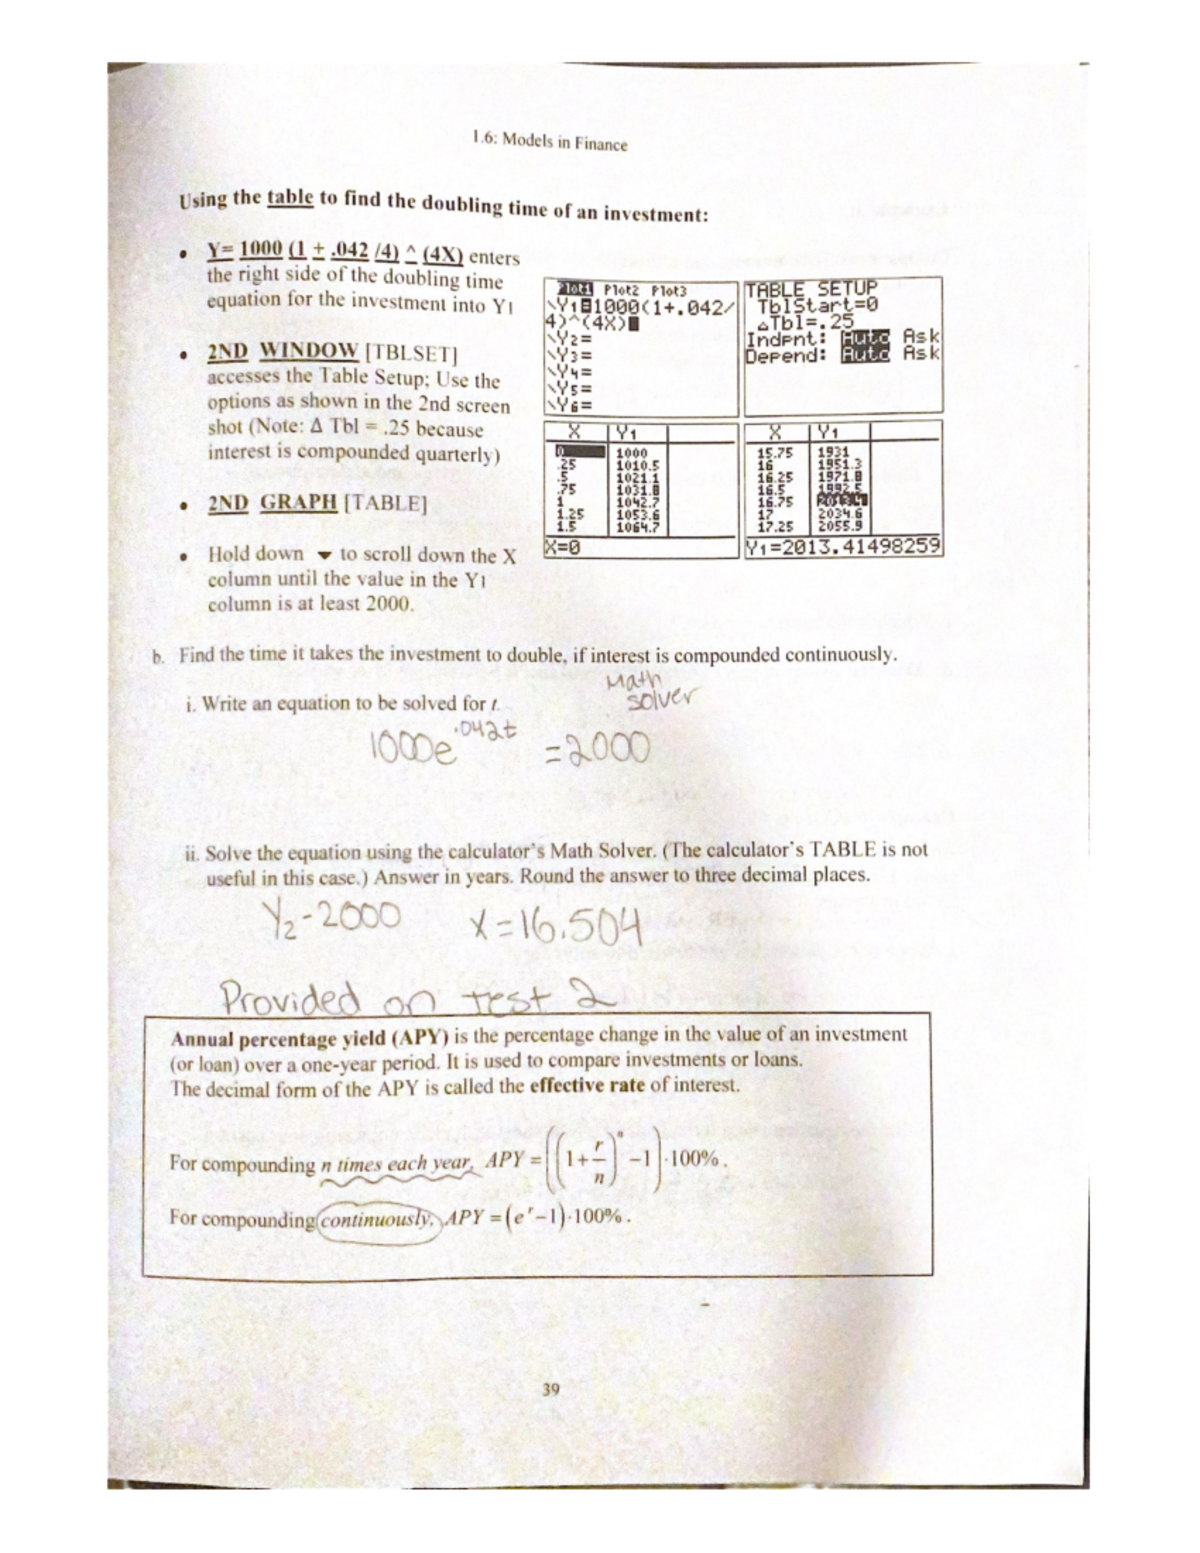 1.6: Models in Finance
Using the table to find the doubling time of an investment:
• Y= 1000 (1 + .042 /4) ^ (4X) enters
the right side of the doubling time
equation for the investment into Y1
• 2ND WINDOW [TBLSET]
accesses the Table Setup; Use the
options as shown in the 2nd screen
shot (Note: Δ Tbl = .25 because
interest is compounded quarterly)
• 2ND GRAPH [TABLE]
• Hold down ▼ to scroll down the X
column until the value in the Y1
column is at least 2000.
Plot1 Plot2 Plot3
\Y1=1000(1+.042/
4)^(4X)
\Y2=
\Y3=
\Y4=
\Y5=
\Y6=
TABLE SETUP
TblStart=0
△Tbl=.25
Indpnt: Auto Ask
Depend: Auto Ask
X Y1
0 1000
.25 1010.5
.5 1021.1
.75 1031.8
1 1042.7
1.25 1053.6
1.5 1064.7
X=0
X Y1
15.75 1931
16 1951.3
16.25 1971.8
16.5 1992.5
16.75 2013.4
17 2034.6
17.25 2055.9
Y1=2013.41498259
b. Find the time it takes the investment to double, if interest is compounded continuously.
Math
solver
i. Write an equation to be solved for t.
1000e^.042t =2000
ii. Solve the equation using the calculator's Math Solver. (The calculator's TABLE is not
useful in this case.) Answer in years. Round the answer to three decimal places.
Y2-2000 X=16.504
Provided on test 2
Annual percentage yield (APY) is the percentage change in the value of an investment
(or loan) over a one-year period. It is used to compare investments or loans.
The decimal form of the APY is called the effective rate of interest.
For compounding n times each year, APY = ((1+r/n)^n −1)·100%.
For compounding continuously, APY = (e^r−1)·100%.
39